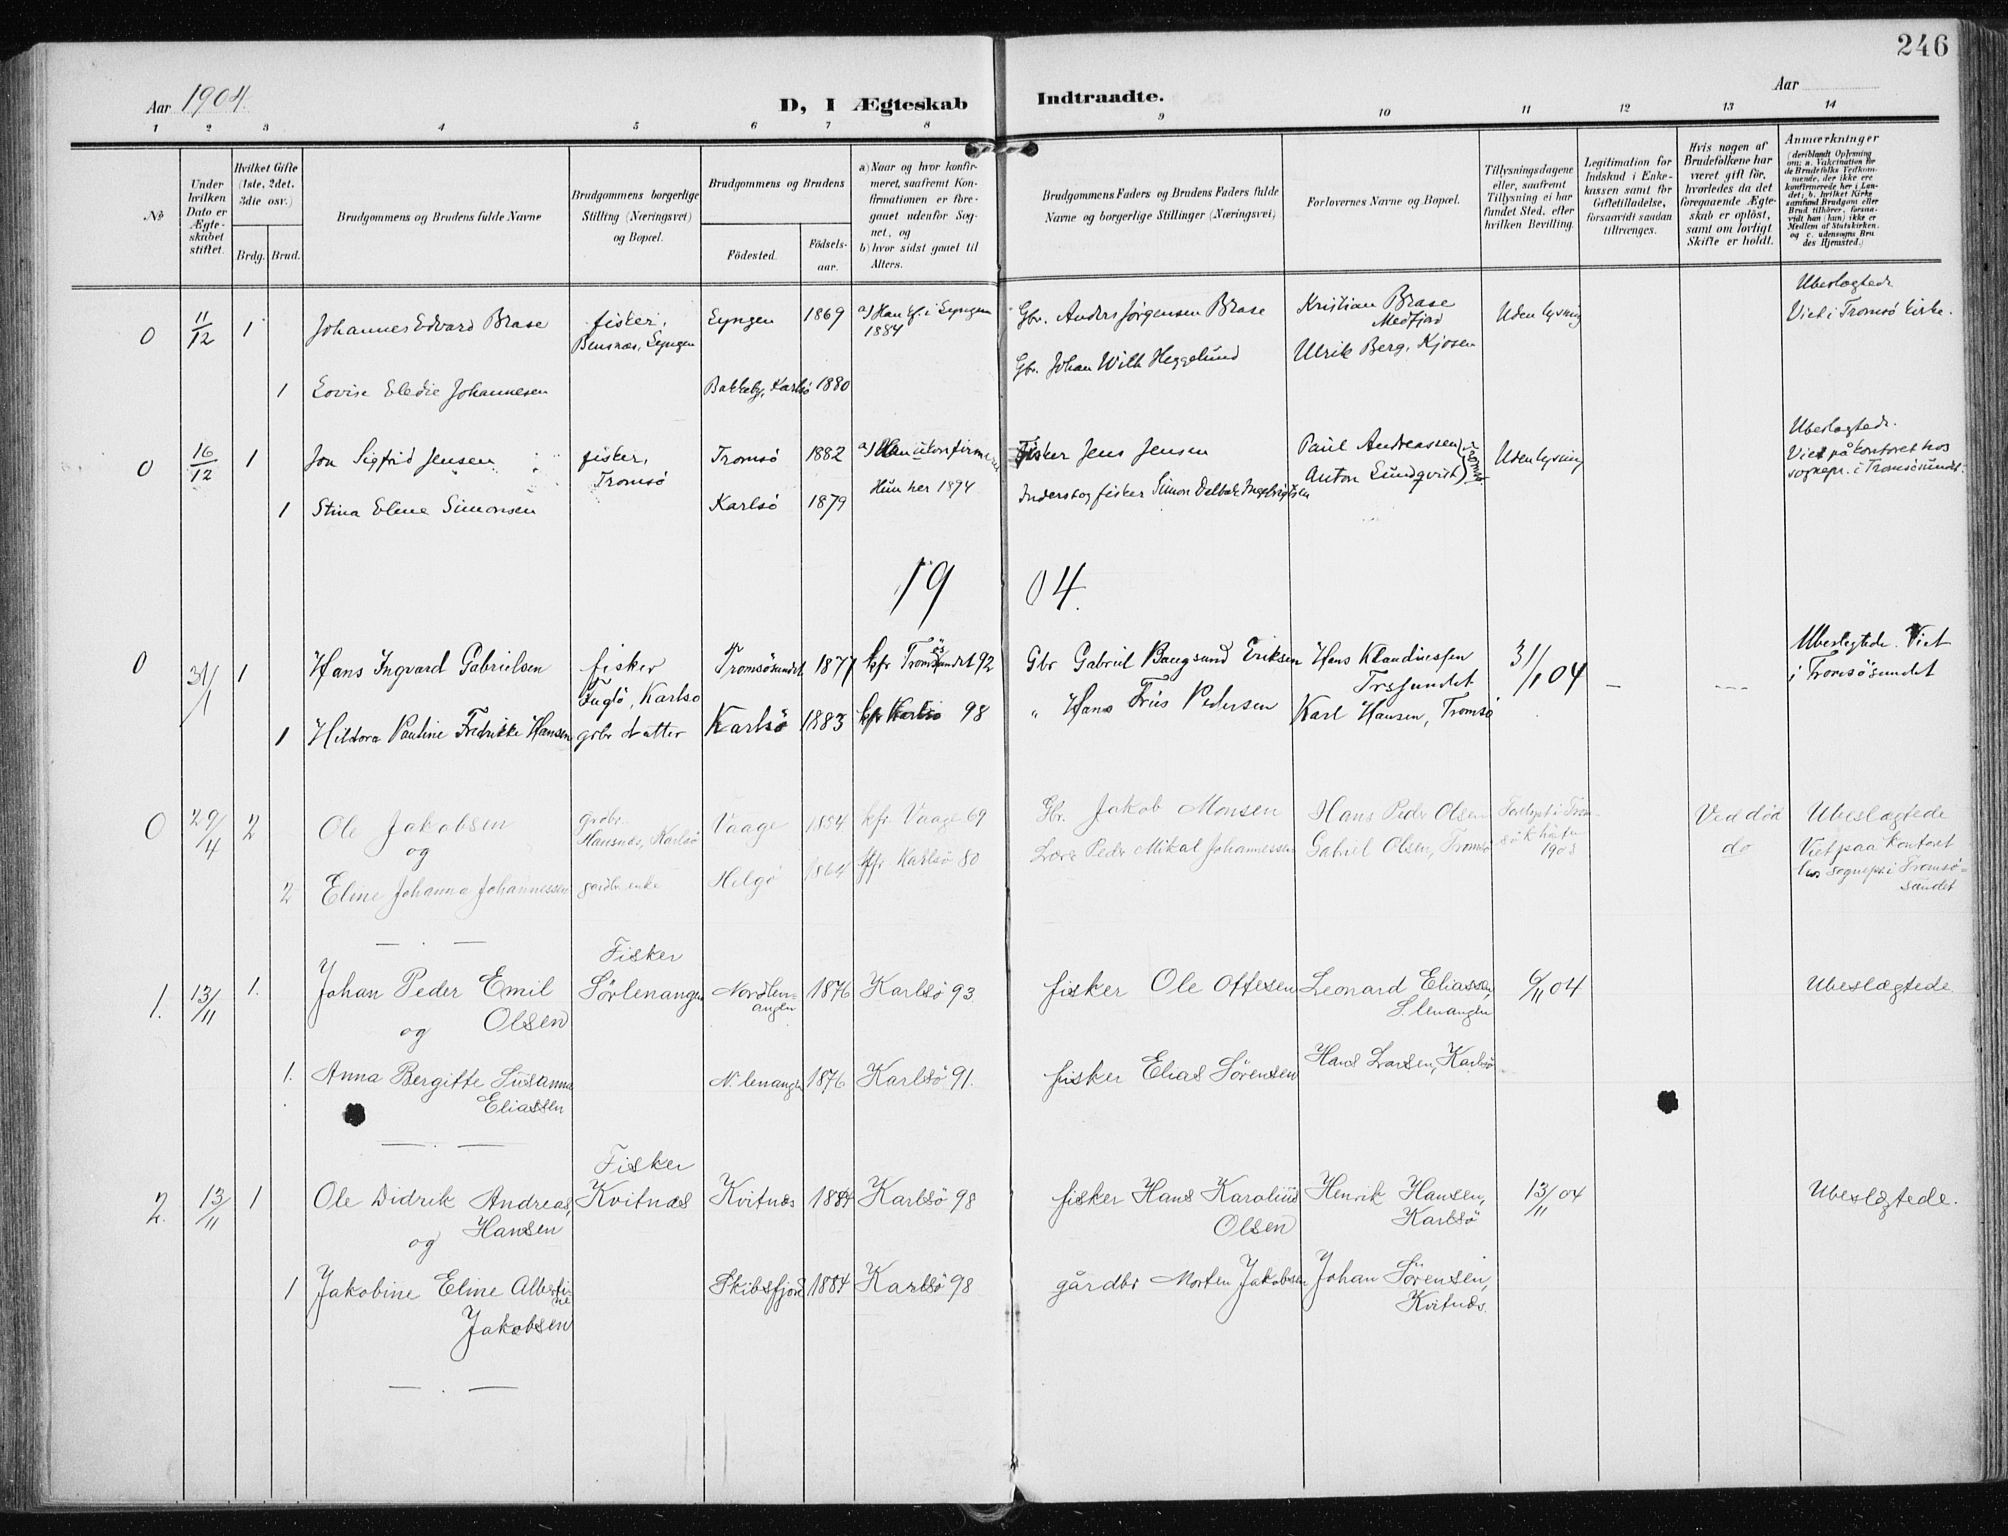 246
Aar 1904.
D, I Ægteskab Indtraadte.
Aar
1 2 3 4 5 6 7 8 9 10 11 12 13 14
№
Under hvilken Dato er Ægteskabet stiftet.
Hvilket Gifte (1ste, 2det, 3die osv.)
Brdg. Brud.
Brudgommens og Brudens fulde Navne
Brudgommens borgerlige Stilling (Næringsvei) og Bopæl.
Brudgommens og Brudens
Födested.
Födselsaar.
a) Naar og hvor konfirmeret, saafremt Konfirmationen er foregaaet udenför Sognet, og
b) hvor sidst gaaet til Alters.
Brudgommens Faders og Brudens Faders fulde Navne og borgerlige Stillinger (Næringsvei)
Forlovernes Navne og Bopæl.
Tillysningsdagene eller, saafremt Tillysning ei har fundet Sted, efter hvilken Bevilling.
Legitimation for Indskud i Enkekassen samt för Giftetilladelse, forsaavidt saadan tiltrænges.
Hvis nogen af Brudefolkene har været gift för, hvorledes da det foregaaende Ægteskab er oplöst, samt om lovligt Skifte er holdt.
Anmærkninger
(deriblandt Oplysning om: a. Vakcination for de Brudefolks Vedkommende, der ikke ere konfirmerede her i Landet; b. hvilket Kirkesamfund Brudgom eller Brud tilhörer, forsaavidt han (hun) ikke er Medlem af Statskirken, og c. udensogns Brudes Hjemsted.)
0 11/12 1 Johannes Edvard Brase fisker, Bensnæs, Lyngen Lyngen 1869 a) Han kf. i Lyngen 1884 Gbr. Anders Jörgensen Brase Kristian Brase Medfjord Uden lysning Ubeslægtede Viet i Tromsö kirke.
1 Lovise Eledie Johannesen Bakkeby, Karlsö 1880 Gbr. Johan With Heggelund Ulrik Berg, Kjosen
0 16/12 1 Jon Sigfrid Jensen fisker, Tromsö Tromsö 1882 a) Han ukonfirmeret Fisker Jens Jensen Paul Andreassen Tromsö Uden lysning Ubeslægtede. Viet på kontoret hos sognepr. i Tromsösundet.
1 Stina Eline Simonsen Karlsö 1879 Hun her 1894 Inderst og fisker Simon Ingebrigtsen Anton Lundqvist
1904.
0 31/1 1 Hans Ingvard Gabrielsen fisker Fuglö, Karlsö Tromsösundet 1877 kfr Tromsösundet 92 Gbr Gabriel Baugsund Eriksen Hans Klaudiussen Trssundet 31/1 04 — — Ubeslegtede. Viet i Tromsösundet
1 Hildora Pauline Fredrikke Hansen grbr datter Karlsö 1883 kfr Karlsö 98 " Hans Friis Pedersen Karl Hansen, Tromsö
0 29/4 2 Ole Jakobsen grdbr. Hansnes, Karlsö Vaage 1854 kfr. Vaage 69 Gbr. Jakob Monsen Hans Peder Olsen 1903 Ved död Ubeslægtede
og
2 Eline Johanna Johannessen gardbr. enke Helgö 1864 kfr Karlsö 80 Peder Mikal Johannessen Gabriel Olsen, Tromsö do Viet paa kontoret hos sognepr. i Tromsösundet
1. 13/11 1. Johan Peder Emil Olsen Fisker Sörlenangen Nordlenangen 1876 Karlsö 93 fisker Ole Ottesen Leonard Eliassen, S. lenangen 6/11 04 Ubeslægtede.
og
1. Anna Bergitte Susanna Eliassen N. lenangen 1876 Karlsö 91. fisker Elias Sörensen Hans Larsen, Karlsö
2. 13/11 1 Ole Didrik Andreas, Hansen Fisker Kvitnæs Kvitnæs 1884 Karlsö 98 fisker Hans Karolius Olsen Henrik Hansen, Karlsö 13/11 04 Ubeslægtede.
og
1 Jakobine Eline Albertine Jakobsen Skibsfjord 1884 Karlsö 98 gårdbr Morten Jakobsen Johan Sörensen, Kvitnæs.